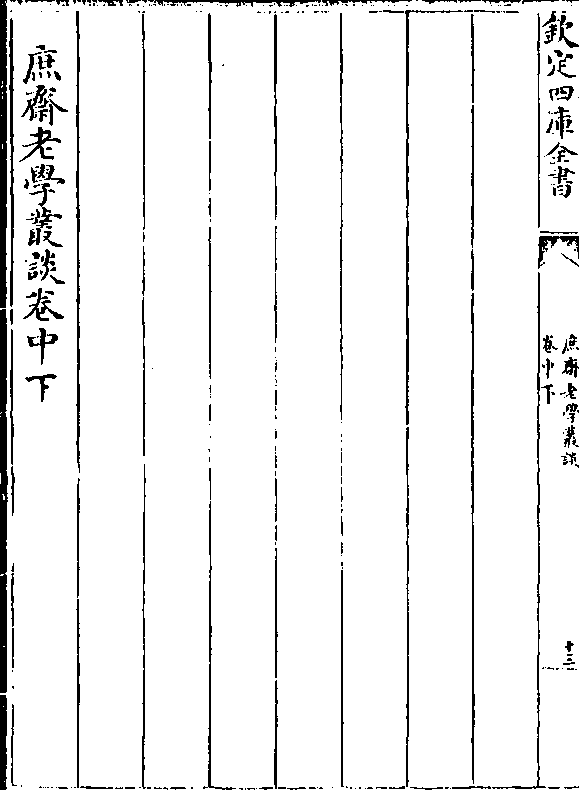 欽定四庫全書
庶齋老學叢談
卷中下
十三
庶齋老學叢談卷中下